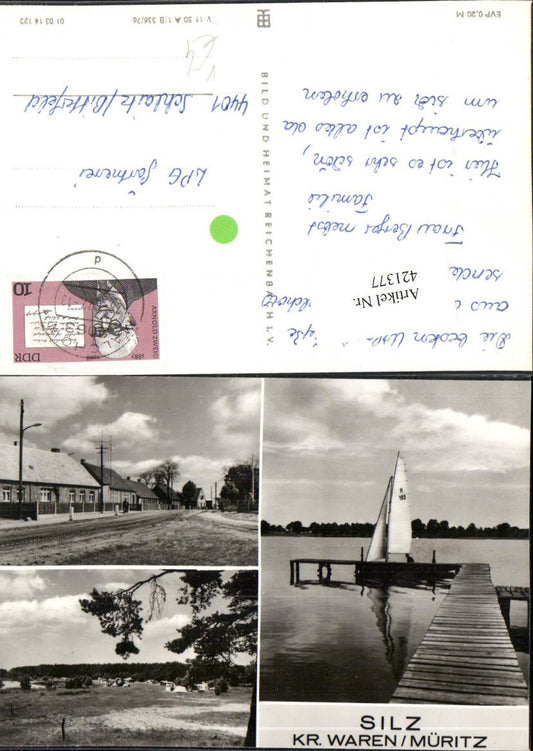 EVP 0,20 M
V 11 50 A 1/B 336/76
01 03 14 125
BILD UND HEIMAT REICHENBACH I. V.
Artikel Nr.
421377
Die besten
aus
sende
Frau Berger nebst
Familie
Hier ist es sehr schön,
überhaupt ist alles da
um sich zu erholen
ARNOLD ZWEIG
1887
1968
DDR
10
LPG Gärtnerei
4401 Schlaitz/Bitterfeld
H
193
SILZ
KR. WAREN/MÜRITZ